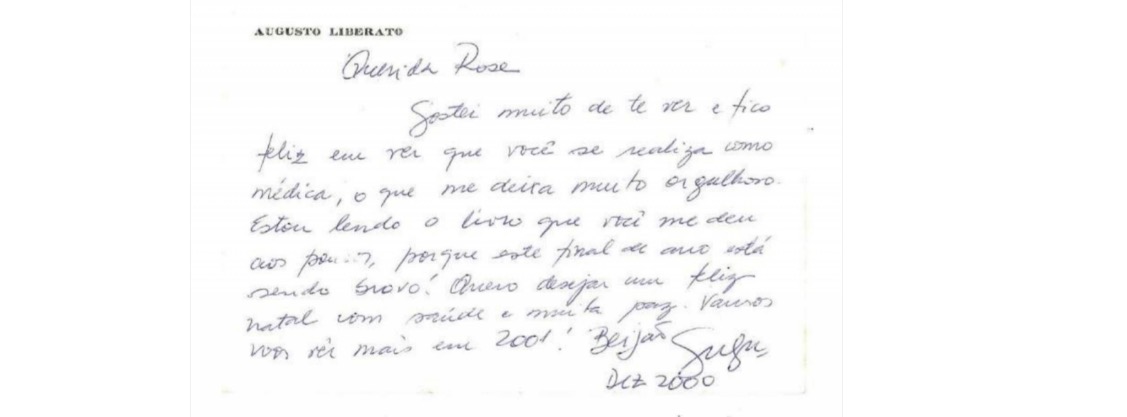 AUGUSTO LIBERATO
Querida Rose
Gostei muito de te ver e fico
feliz em ver que você se realiza como
médica, o que me deixa muito orgulhoso.
Estou lendo o livro que você me deu
aos porque este final de ano está
sendo bravo! Quero desejar um feliz
natal com saúde e muita paz. Vamos
nos vêr mais em 2001! Beijão Gugu
DEZ 2000